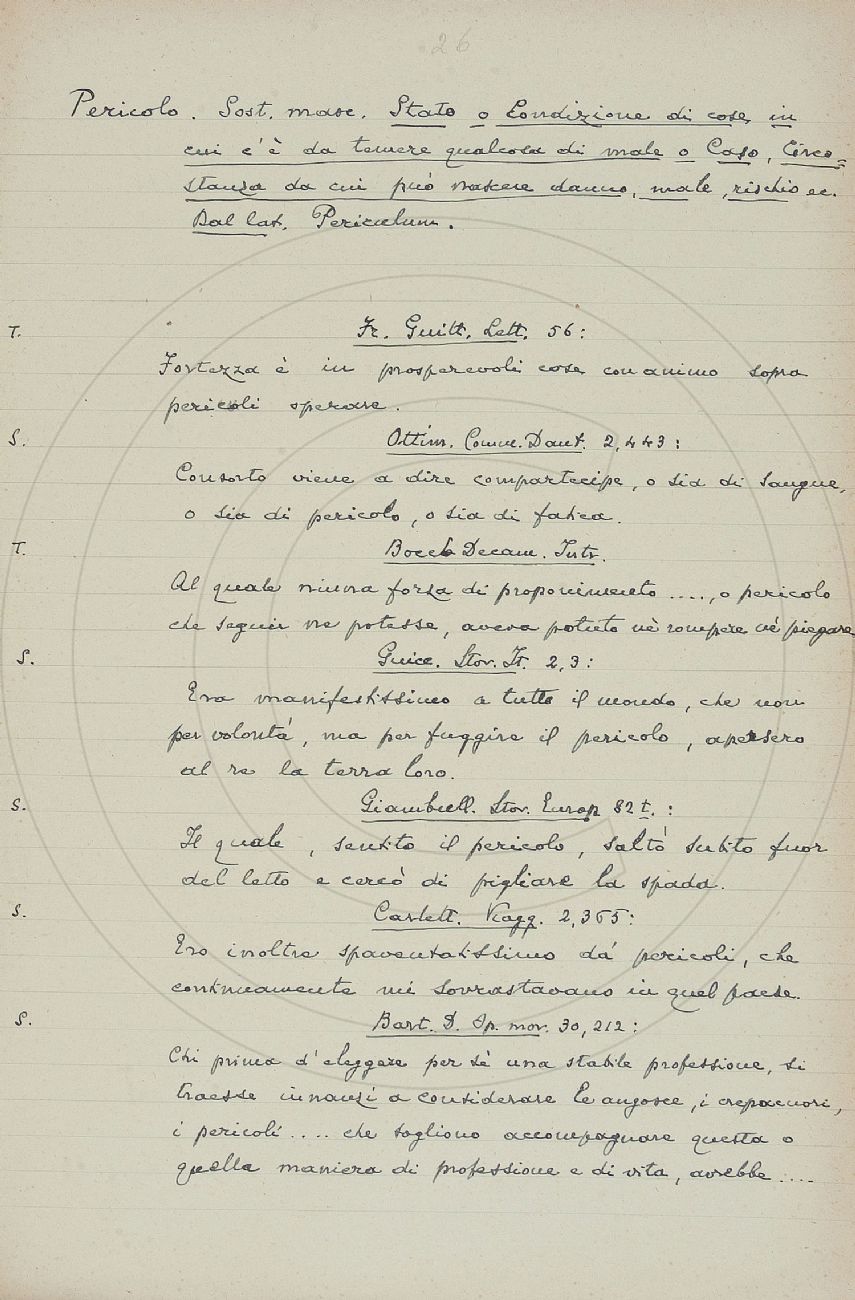 26
Pericolo. Sost. masc. Stato o Condizione di cose in
cui c'è da temere qualcosa di male o Caso, Circo=
stanza da cui può nascere danno, male, rischio ec.
Dal lat. Periculum.
T. Fr. Guitt. Lett. 56:
Fortezza è in prosperevoli cose con animo sopra
pericoli sperare.
S. Ottim. Comm. Dant. 2,443:
Consorto viene a dire compartecipe, o sia di sangue,
o sia di pericolo, o sia di fatica.
T. Bocc. Decam. Intr.
Al quale niuna forza di proponimento ...., o pericolo
che seguir ne potesse, aveva potuto nè rompere nè piegare
S. Guicc. Stor. It. 2,3:
Era manifestissimo a tutto il mondo, che non
per volontà, ma per fuggire il pericolo, apersero
al re la terra loro.
S. Giambull. Stor. Europ 82 t. :
Il quale, sentito il pericolo, saltò subito fuor
del letto e cercò di pigliare la spada.
S. Carlett. Viagg. 2,365:
Ero inoltre spaventatissimo dá pericoli, che
continuamente mi sovrastavano in quel paese.
S. Bart. D. Op. mor. 30,212:
Chi prima d'eleggere per sè una stabile professione, si
traesse innanzi a considerare le angosce, i crepacuori,
i pericoli .... che sogliono accompagnare questa o
quella maniera di professione e di vita, avrebbe ....